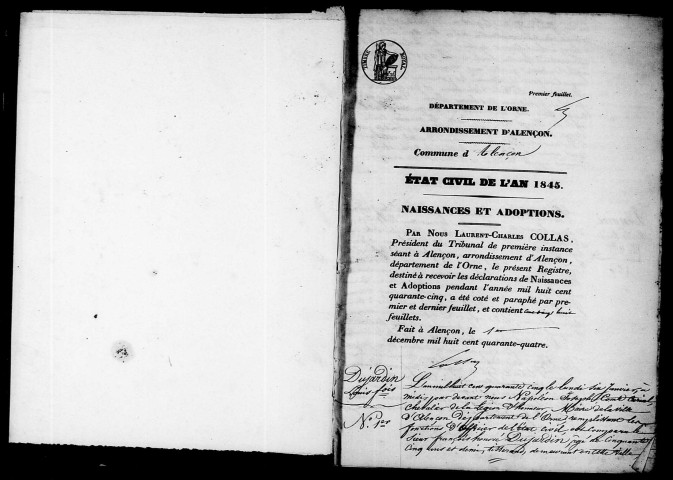 TIMBRE ROYAL
Premier feuillet.
DÉPARTEMENT DE L'ORNE.
ARRONDISSEMENT D'ALENÇON.
Commune d'Alençon
ÉTAT CIVIL DE L'AN 1845.
NAISSANCES ET ADOPTIONS.
PAR NOUS LAURENT-CHARLES COLLAS,
Président du Tribunal de première instance
séant à Alençon, arrondissement d'Alençon,
département de l'Orne, le présent Registre,
destiné à recevoir les déclarations de Naissances
et Adoptions pendant l'année mil huit cent
quarante-cinq, a été coté et paraphé par pre-
mier et dernier feuillet, et contient
feuillets.
Fait à Alençon, le 1er
décembre mil huit cent quarante-quatre.
Collas
Dujardin
Louis
N.° 1er
L'an mil huit cent quarante cinq le lundi six janvier à
midi, par devant nous Napoléon Joseph
chevalier de la légion d'honneur, Maire de la ville
d'Alençon Département de l'Orne, remplissant les
fonctions d'officier de l'état civil, est comparu
sieur françois Dujardin, âgé de cinquante
cinq ans et demi, tisserand, demeurant en cette ville